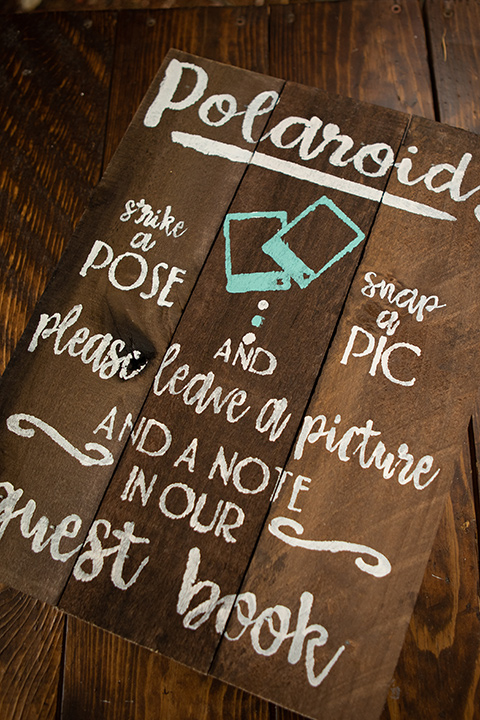 Polaroid
strike
a
POSE
AND
snap
a
PIC
please leave a picture
AND A NOTE
IN OUR
guest book